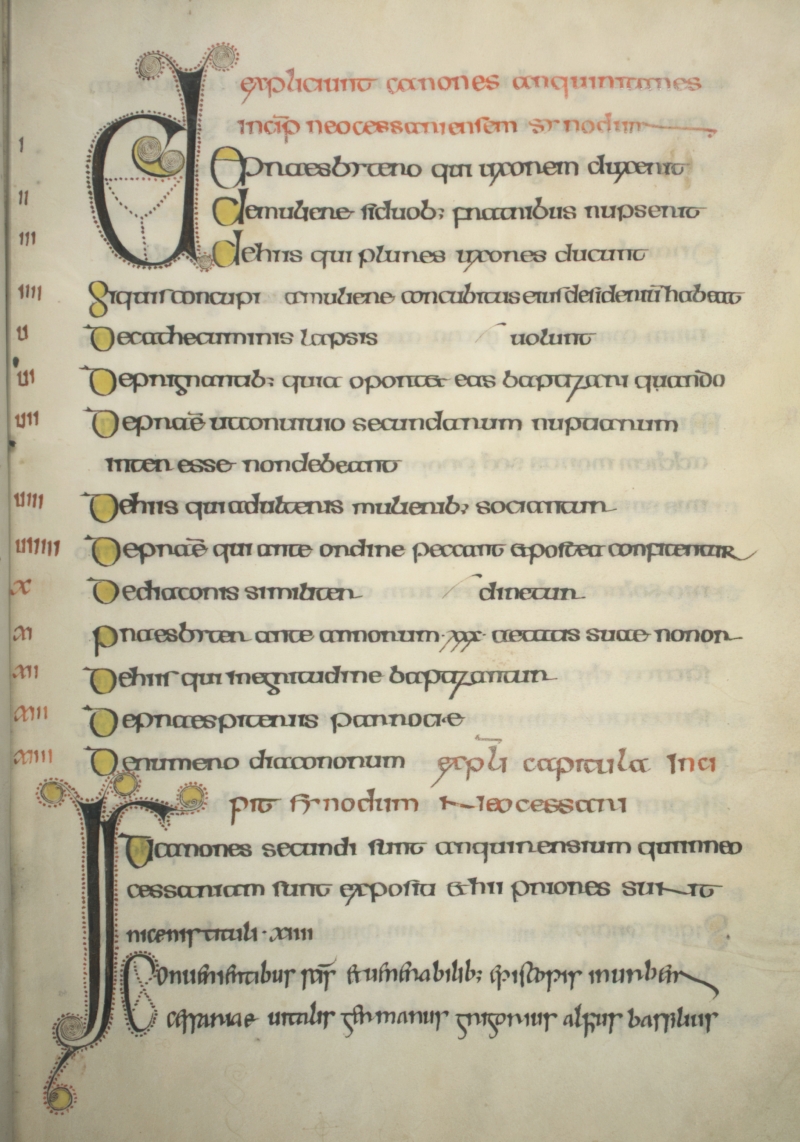 expliciunt canones anquiritanes
incip̄ neocessariensem sinodum
I De praesbitero qui uxorem duxerit
II De muliere si duob; fratribus nupserit
III De hiis qui plures uxores ducunt
IIII Siquis concupi a muliere concubitus eius desiderium habeat
U De catheciminis lapsis uolunt
UI De prignantib; quia oportet eas baptizari quando
UII De praē ut conuiuio secundarum nuptiarum
inter esse non debeant
UIIII De hiis qui adulteriis mulierib; sociantur
UIIIIII De praē qui ante ordine peccant et postea confitentur
X De diaconis similiter dinetur
XI praesbiter ante annorum ·xxx· aetatis suae non or
XII De hiis qui in egritudine baptizantur
XIII De praespiteriis parrociae
XIIII De numero diaconorum expli capitula Inci
pit sinodum Neocessari
Ii canones secundi sunt anquirensium qui in neo
cessariam sunt exposita et hii priores sunt
nicenis tituli ·xiiii
cessariae uitalis germanus grigorius alfius bassilius